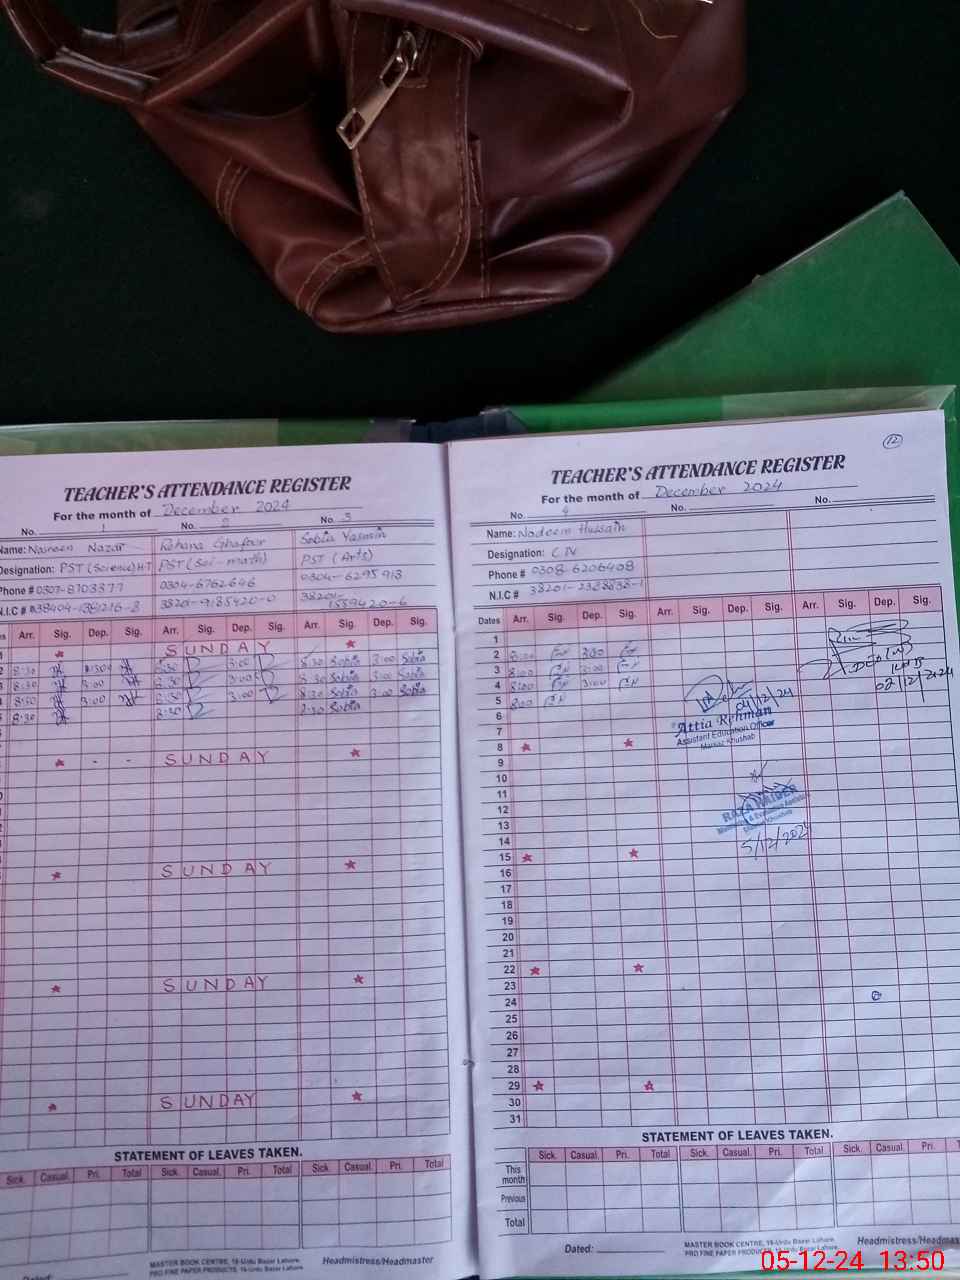 TEACHER'S ATTENDANCE REGISTER
For the month of December 2024
No. 1 No. 2 No. 3
Name: Nasreen Nazar Rehana Ghafoor Sobia Yasmin
Designation: PST (Science) HT PST (Sci-math) PST (Arts)
Phone # 0307-8703377 0304-6762646 0304-6295913
N.I.C # 38201-9185420-0 38201-
Arr. Sig. Dep. Sig. Arr. Sig. Dep. Sig. Arr. Sig. Dep. Sig.
SUNDAY
8:30 8:30 3:00 8:30 Sobia 3:00 Sobia
8:30 3:00 8:30 3:00 8:30 Sobia 3:00 Sobia
8:30 3:00 8:30 3:00 8:30 Sobia 3:00 Sobia
8:30 8:30 8:30 Sobia
SUNDAY
SUNDAY
SUNDAY
SUNDAY
STATEMENT OF LEAVES TAKEN.
Sick. Casual. Pri. Total Sick. Casual. Pri. Total Sick. Casual. Pri. Total
MASTER BOOK CENTRE, 16-Urdu Bazar Lahore.
PRO FINE PAPER PRODUCTS, 16-Urdu Bazar Lahore.
Headmistress/Headmaster
12
TEACHER'S ATTENDANCE REGISTER
For the month of December 2024
No. 4 No. No.
Name: Nadeem Hussain
Designation: C IV
Phone # 0308-6206408
N.I.C # 38201-2328838-1
Dates Arr. Sig. Dep. Sig. Arr. Sig. Dep. Sig. Arr. Sig. Dep. Sig.
1
2 8:00 3:00
3 8:00 3:00
4 8:00 3:00
5 8:00
6
7
8
9
10
11
12
13
14
15
16
17
18
19
20
21
22
23
24
25
26
27
28
29
30
31
02/12/2024
04/12/24
Attia Rehman
Assistant Education Officer
Markaz Khushab
RAZA HAIDER
5/12/2024
STATEMENT OF LEAVES TAKEN.
Sick. Casual. Pri. Total Sick. Casual. Pri. Total Sick. Casual. Pri.
This month
Previous
Total
Dated:
MASTER BOOK CENTRE, 16-Urdu Bazar Lahore.
PRO FINE PAPER PRODUCTS, 16-Urdu Bazar Lahore.
Headmistress/Headma
05-12-24 13:50